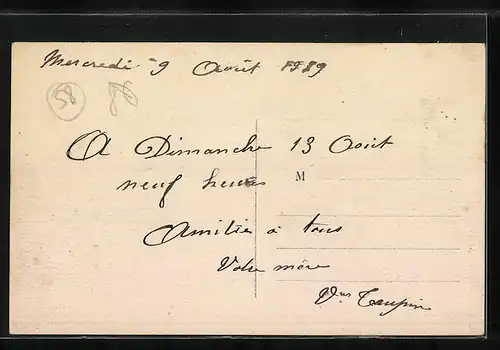 Mercredi 9 Août 1939
58
A Dimanche 13 Août
neuf heures
M
Amitiés à tous
Votre mère
Vve Taupin